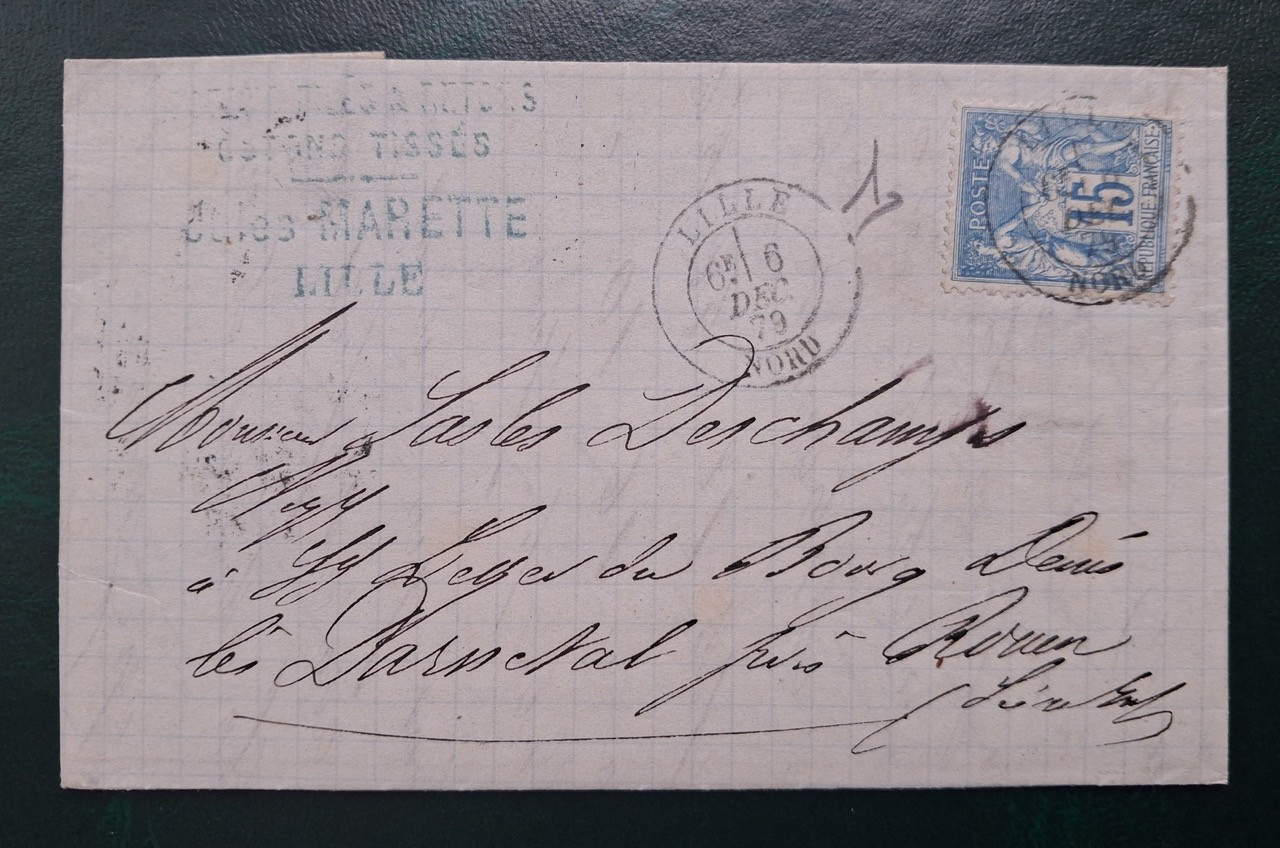 FILÉS & RETORS
COTONS TISSÉS
Jules MARETTE
LILLE
LILLE
6E 6
DEC.
79
NORD
POSTE
15
REPUBLIQUE FRANÇAISE
NORD
Monsieur Deschamps
à St Leger du Bourg Denis
lès Darnetal près Rouen